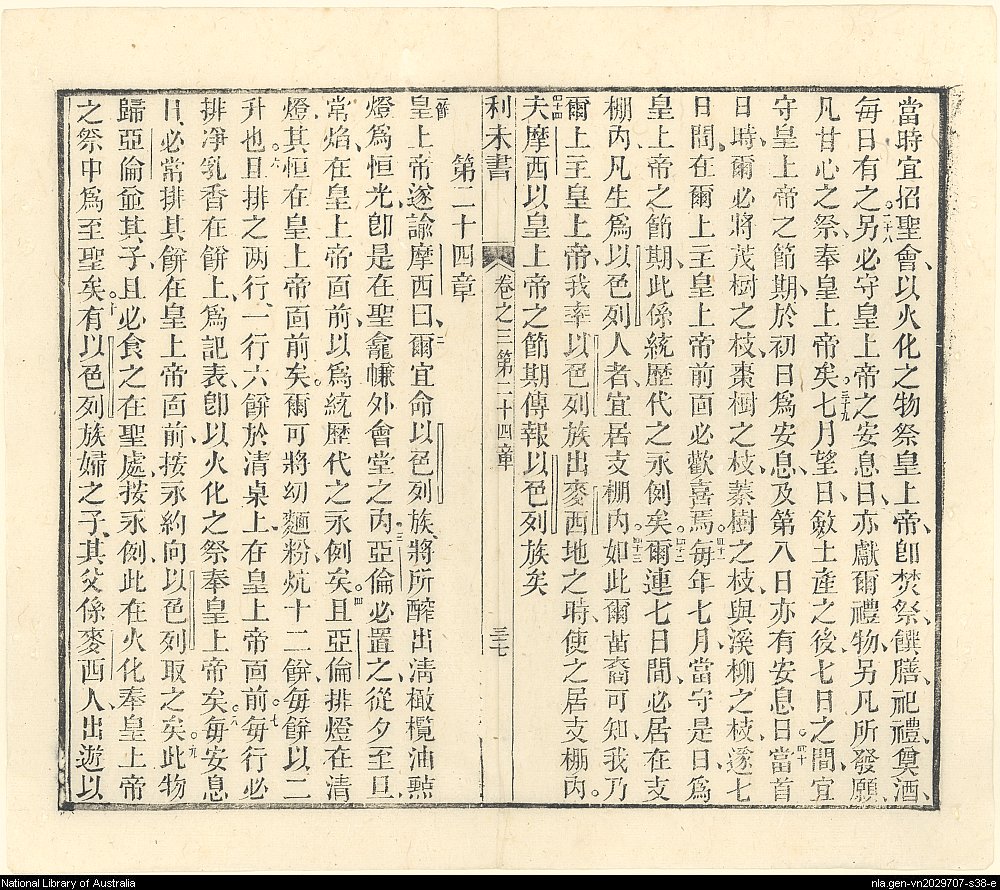 當時宜招聖會、以火化之物祭皇上帝、卽焚祭、饌膳、祀禮、奠酒、
每日有之。三十八另必守皇上帝之安息日、亦獻爾禮物、另凡所發願、
凡甘心之祭、奉皇上帝矣。三十九七月望日、斂土產之後、七日之間、宜
守皇上帝之節期、於初日爲安息、及第八日亦有安息日。四十當首
日時、爾必將茂樹之枝、棗樹之枝、蓁樹之枝、與溪柳之枝、遂七
日間、在爾上主皇上帝前面必歡喜焉。四十一每年七月、當守是日、爲
皇上帝之節期、此係統歷代之永例矣。四十二爾連七日間、必居在支
棚內、凡生爲以色列人者、宜居支棚內。四十三如此爾苗裔可知、我乃
爾上主皇上帝、我牽以色列族出麥西地之時、使之居支棚內。
四十四夫摩西以皇上帝之節期傳報以色列族矣
利未書 卷之三第二十四章 三十七
第二十四章
一節皇上帝遂諭摩西曰、二爾宜命以色列族、將所醡出淸橄欖油㸃
燈爲恒光、卽是在聖龕㡘外會堂之內、三亞倫必置之、從夕至旦、
常焰、在皇上帝面前、以爲統歷代之永例矣。四且亞倫排燈在淸
燈、其恒在皇上帝面前矣。五爾可將幼麵粉、炕十二餅、每餅以二
升也。六且排之两行、一行六餅於淸桌上、在皇上帝面前。七每行必
排凈乳香在餅上、爲記表、卽以火化之祭奉皇上帝矣。八每安息
日、必常排其餅在皇上帝面前、按永約向以色列取之矣。九此物
歸亞倫並其子、且必食之在聖處、按永例、此在火化奉皇上帝
之祭中爲至聖矣。十有以色列族婦之子、其父係麥西人、出遊以
National Library of Australia
nla.gen-vn2029707-s38-e